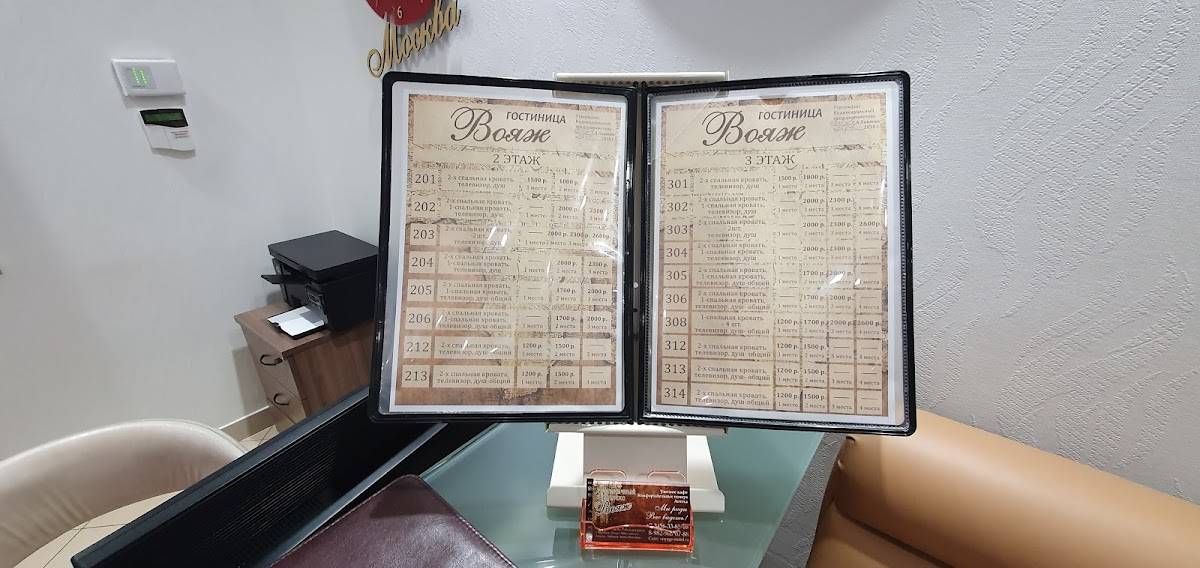 6
Москва
ГОСТИНИЦА
Вояж
2 ЭТАЖ
201 2-х спальная кровать, 1500 р. 1800 р. —
телевизор, душ 1 место 2 места 3 места
202 2-х спальная кровать, — 2000 р. 2300 р.
1-спальная кровать,
телевизор, душ 1 место 2 места 3 места
203 2-х спальная кровать, — 2000 р. 2300 р. 2600 р.
2шт.
телевизор, душ 1 место 2 места 3 места
204 2-х спальная кровать, — 2000 р. 2300 р.
1-спальная кровать,
телевизор, душ 1 место 2 места 3 места
205 2-х спальная кровать, — 1700 р. 2000 р.
1-спальная кровать,
телевизор, душ-общий 1 место 2 места 3 места
206 2-х спальная кровать, — 1700 р. 2000 р.
1-спальная кровать,
телевизор, душ-общий 1 место 2 места 3 места
212 2-х спальная кровать, 1200 р. 1500 р. —
телевизор, душ-общий 1 место 2 места 3 места
213 2-х спальная кровать, 1200 р. 1500 р. —
телевизор, душ-общий 1 место 2 места 3 места
ГОСТИНИЦА
Вояж
3 ЭТАЖ
301 2-х спальная кровать, 1500 р. 1800 р. — —
телевизор, душ 1 место 2 места 3 места 4 места
302 2-х спальная кровать, — 2000 р. 2300 р. —
1-спальная кровать,
телевизор, душ 1 место 2 места 3 места 4 места
303 2-х спальная кровать, — 2000 р. 2300 р. 2600 р.
2шт.
телевизор, душ 1 место 2 места 3 места 4 места
304 2-х спальная кровать, — 2000 р. 2300 р. —
1-спальная кровать,
телевизор, душ 1 место 2 места 3 места 4 места
305 2-х спальная кровать, — 1700 р. 2000 р. —
1-спальная кровать,
телевизор, душ-общий 1 место 2 места 3 места 4 места
306 2-х спальная кровать, — 1700 р. 2000 р. —
1-спальная кровать,
телевизор, душ-общий 1 место 2 места 3 места 4 места
308 1-спальная кровать, 1200 р. 1700 р. 2000 р. 2600 р.
4 шт.
телевизор, душ-общий 1 место 2 места 3 места 4 места
312 2-х спальная кровать, 1200 р. 1500 р. — —
телевизор, душ-общий 1 место 2 места 3 места 4 места
313 2-х спальная кровать, 1200 р. 1500 р. — —
телевизор, душ-общий 1 место 2 места 3 места 4 места
314 2-х спальная кровать, 1200 р. 1500 р. — —
телевизор, душ-общий 1 место 2 места 3 места 4 места
Вояж
Уютное кафе
Комфортабельные номера
Мы рады
Вас видеть!